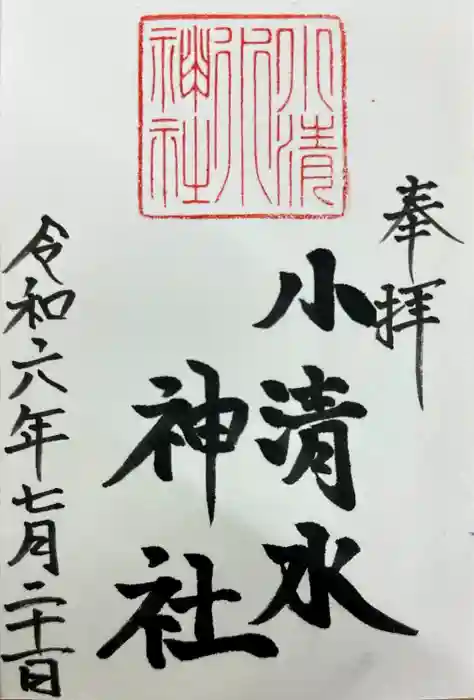 奉拝
小清水
神社
小清水神社
令和六年七月二十一日